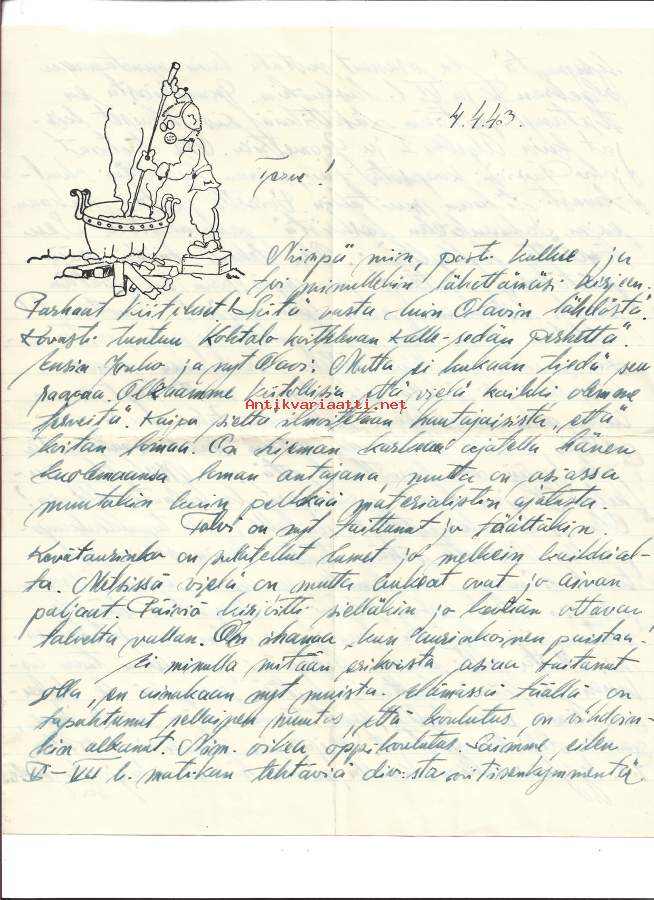 4.4.43.
Terve!
Niinpä niin, posti kulkee ja
toi minullekin lähettämäsi kirjeen.
Parhaat kiitokset siitä vasta kuin Olavin lähdöstä.
Kovasti tuntuu kohtalo koittelevan Kalle-sedän perhettä.
Ensin Jouko ja nyt Olavi. Mutta ei kukaan tiedä sen
rajaa. Olkaamme kiitollisia että vielä kaikki olemme
terveitä. Kaipa sieltä ilmoitetaan hautajaisista, että
koitan lomaa. On hieman karkeaa ajatella hänen
kuolemaansa loman antajana, mutta on asiassa
muutakin kuin pelkkää materialistin ajatusta.
Talvi on nyt taittunut jo täälläkin.
Kevätaurinko on sulatellut lumet jo melkein kaikkial-
ta. Metsissä vielä on mutta aukeat ovat jo aivan
paljaat. Päiviö kirjoitti sielläkin jo kevään ottavan
talvelta vallan. On ihanaa, kun aurinkoinen paistaa!
Ei minulla mitään erikoista asiaa taitanut
olla, en ainakaan nyt muista. Elämässä täällä on
tapahtunut sellainen muutos, että koulutus on vihdoin-
kin alkanut. Nim. oikea oppikoulutus. Saimme eilen
V-VIII l. matikan tehtäviä div:sta viitisenkymmentä
Antikvariaatti.net